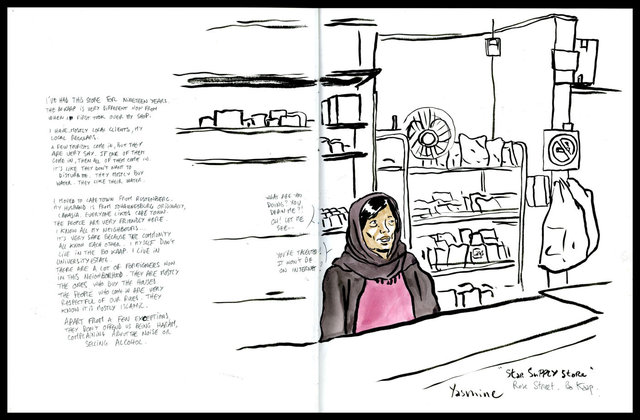 I'VE HAD THIS STORE FOR NINETEEN YEARS.
THE BO KAAP IS VERY DIFFERENT NOW FROM
WHEN I FIRST TOOK OVER MY SHOP.
I HAVE MOSTLY LOCAL CLIENTS, MY
LOCAL REGULARS.
A FEW TOURISTS COME IN, BUT THEY
ARE VERY SHY. IF ONE OF THEM
COME IN, THEN ALL OF THEM COME IN.
IT'S LIKE THEY DON'T WANT TO
DISTURB ME. THEY MOSTLY BUY
WATER. THEY LIKE THEIR WATER.
I MOVED TO CAPE TOWN FROM RUSTENBERG.
MY HUSBAND IS FROM JOHANNESBURG ORIGINALLY,
EVERYONE LIKES CAPE TOWN.
THE PEOPLE ARE VERY FRIENDLY HERE
I KNOW ALL MY NEIGHBOURS.
IT'S VERY SAFE BECAUSE THE COMMUNITY
ALL KNOW EACH OTHER. I MYSELF DON'T
LIVE IN THE BO KAAP. I LIVE IN
UNIVERSITY ESTATE.
THERE ARE A LOT OF FOREIGNERS NOW
IN THIS NEIGHBORHOOD. THEY ARE MOSTLY
THE ONES WHO BUY THE HOUSES.
THE PEOPLE WHO COME IN ARE VERY
RESPECTFUL OF OUR RULES. THEY
KNOW IT IS MOSTLY ISLAMIC.
APART FROM A FEW EXCEPTIONS,
THEY DON'T OFFEND US BEING HARAM,
COMPLAINING ABOUT THE NOISE OR
SELLING ALCOHOL.
WHAT ARE YOU
DOING? YOU
DRAW ME?
OH! LET ME
SEE...
YOU'RE TALENTED
IT WON'T BE
ON INTERNET
"STAR SUPPLY STORE"
Rose Street. Bo Kaap.
Yasmine